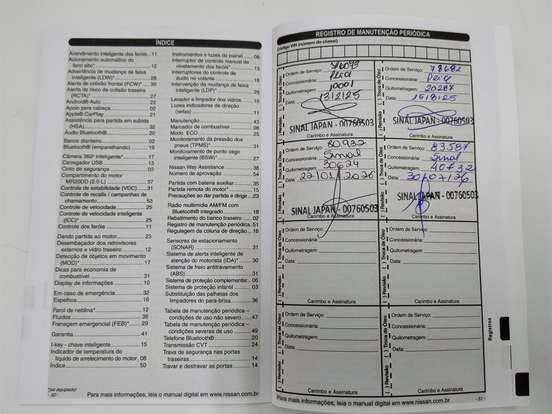 ÍNDICE
Acendimento inteligente dos faróis.. 11
Acionamento automático do
farol alto* 12
Advertência de mudança de faixa
inteligente (LDW)* 28
Alerta de colisão frontal (FCW)* 30
Alerta de risco de colisão traseira
(RCTA)* 27
Android® Auto 22
Apoio para cabeça 02
Apple® CarPlay 21
Assistência para partida em subida
(HSA) 32
Áudio Bluetooth® 20
Banco dianteiro 02
Bluetooth® (emparelhando) 19
Câmera 360º inteligente* 17
Carregador USB 13
Cinto de segurança 03
Compartimento do motor
Controle de estabilidade (VDC) 31
Controle de rácalls / campanhas de
chamamento 53
Controle de velocidade 25
Controle de velocidade inteligente
(ICC)* 25
Controle dos faróis 11
Dando partida ao motor 23
Desembaçador dos retrovisores
externos e vidro traseiro 12
Detecção de objetos em movimento
(MOD)* 17
Dicas para economia de
combustível 31
Display de informações 10
Em caso de emergência 32
Espelhos 16
Farol de neblina* 12
Fluidos 38
Frenagem emergencial (FEB)* 29
Garantia 41
I-key - chave inteligente 15
Indicador de temperatura do
líquido de arrefecimento do motor 08
Índice 50
- 50 -
Instrumentos e luzes do painel 06
Interruptor de controle manual de
nivelamento dos faróis* 13
Interruptores do controle de
áudio no volante 18
Intervenção de mudança de faixa
inteligente (LDP)* 29
Lavador e limpador dos vidros 10
Luzes indicadoras de direção
(setas) 11
Manutenção 35
Marcador de combustível 08
Modo ECO 25
Monitoramento da pressão dos
pneus (TPMS)* 31
Monitoramento de ponto cego
inteligente (BSW)* 27
Nissan Way Assistance 36
Número de aprovação 54
Partida com bateria auxiliar 35
Partida remota do motor* 15
Precauções ao dar partida e dirigir 23
Rádio multimídia AM/FM com
Bluetooth® integrado 18
Rebatimento do banco traseiro 02
Registro de manutenção periódica 51
Regulagem da coluna de direção 16
Sensores de estacionamento
(SONAR) 31
Sistema de alerta inteligente de
atenção do motorista (IDA)* 30
Sistema de freio antitravamento
(ABS) 31
Sistema de proteção complementar 06
Sistema de proteção infantil 03
Substituição das palhetas dos
limpadores do para-brisa 36
Tabela de manutenção –
condições de uso não severo 47
Tabela de manutenção –
condições severas de uso 49
Telefone Bluetooth® 20
Transmissão CVT 24
Trava de segurança nas portas
traseiras 14
Travar e destravar as portas 14
Para mais informações, leia o manual digital em www.nissan.com.br
REGISTRO DE MANUTENÇÃO PERIÓDICA
Código VIN (número do chassi)
Revisão
Troca de Óleo
Ordem de Serviço:
Concessionária: Peri
Quilometragem: 10001
Data: 13/2/25
SINAL JAPAN - 00760503
Carimbo e Assinatura
Revisão
Troca de Óleo
Ordem de Serviço: 78682
Concessionária: Peri
Quilometragem: 20287
Data: 15/8/25
SINAL JAPAN - 00760503
Carimbo e Assinatura
Revisão
Troca de Óleo
Ordem de Serviço: 80932
Concessionária: Sinal
Quilometragem: 30624
Data: 22/01/2026
SINAL JAPAN - 00760503
Carimbo e Assinatura
Revisão
Troca de Óleo
Ordem de Serviço: 83587
Concessionária: Sinal
Quilometragem: 40432
Data:
SINAL JAPAN - 00760503
Carimbo e Assinatura
Revisão
Troca de Óleo
Ordem de Serviço:
Concessionária:
Quilometragem:
Data:
Carimbo e Assinatura
Revisão
Troca de Óleo
Ordem de Serviço:
Concessionária:
Quilometragem:
Data:
Carimbo e Assinatura
Revisão
Troca de Óleo
Ordem de Serviço:
Concessionária:
Quilometragem:
Data:
Carimbo e Assinatura
Revisão
Troca de Óleo
Ordem de Serviço:
Concessionária:
Quilometragem:
Data:
Carimbo e Assinatura
Registros
Para mais informações, leia o manual digital em www.nissan.com.br
- 51 -